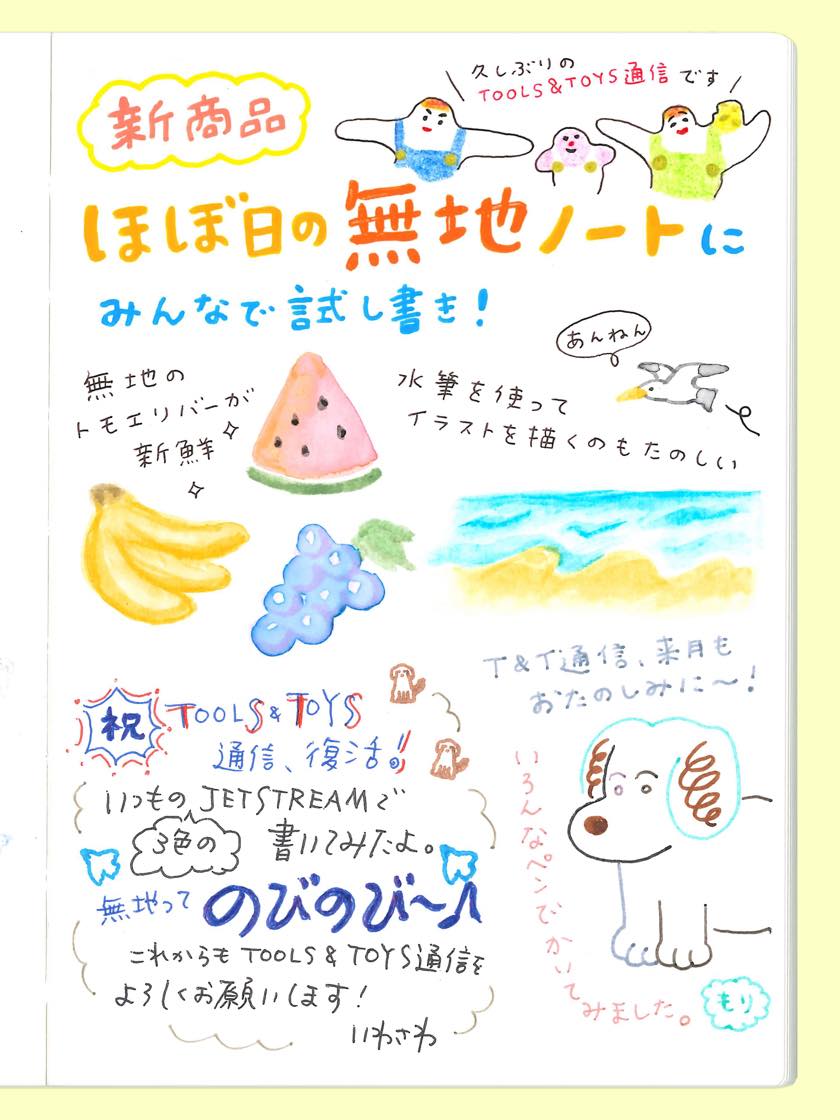 久しぶりの
TOOLS&TOYS通信です
新商品
ほぼ日の無地ノートに
みんなで試し書き！
無地の
トモエリバーが
新鮮
水筆を使って
イラストを描くのもたのしい
あんねん
T&T通信、来月も
おたのしみに〜！
祝
TOOLS&TOYS
通信、復活!!
いつものJETSTREAMで
3色の
書いてみたよ。
無地って
のびのび〜♪
これからもTOOLS&TOYS通信を
よろしくお願いします！
いわさわ
いろんなペンでかいて
みました。
もり